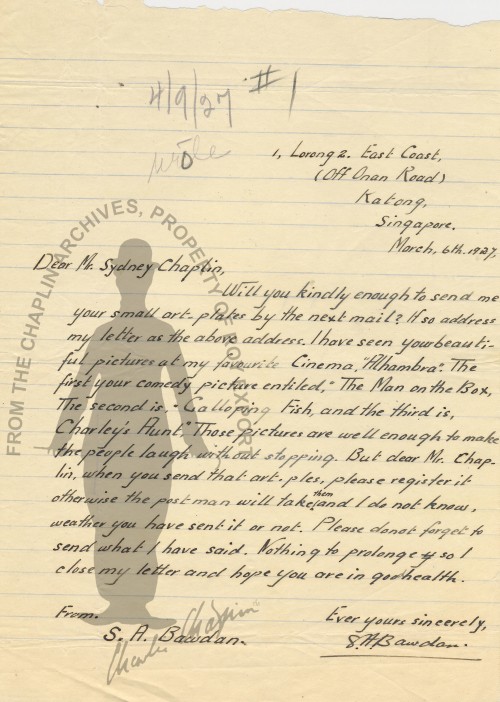 4/9/27 # 1
wrote
1, Lorong 2. East Coast,
(Off Onan Road)
Katong,
Singapore.
March, 6th. 1927,
Dear Mr. Sydney Chaplin,
Will you kindly enough to send me
your small art-plates by the next mail? If so address
my letter as the above address. I have seen your beauti-
ful pictures at my favourite Cinema, "Alhambra". The
first your comedy picture entitled, "The Man on the Box,
The second is, "Galloping Fish, and the third is,
Charley's Aunt," Those pictures are well enough to make
the people laugh without stopping. But dear Mr. Chap-
lin, when you send that art-ples, please register it
otherwise the postman will take them and I do not know,
weather you have sent it or not. Please donot forget to
send what I have said. Nothing to prolonge so I
close my letter and hope you are in godhealth.
From. Ever yours sincerely,
S. A. Bawdan. S A Bawdan.
FROM THE CHAPLIN ARCHIVES, PROPERTY OF ROY EXPORT
Charles Chaplin